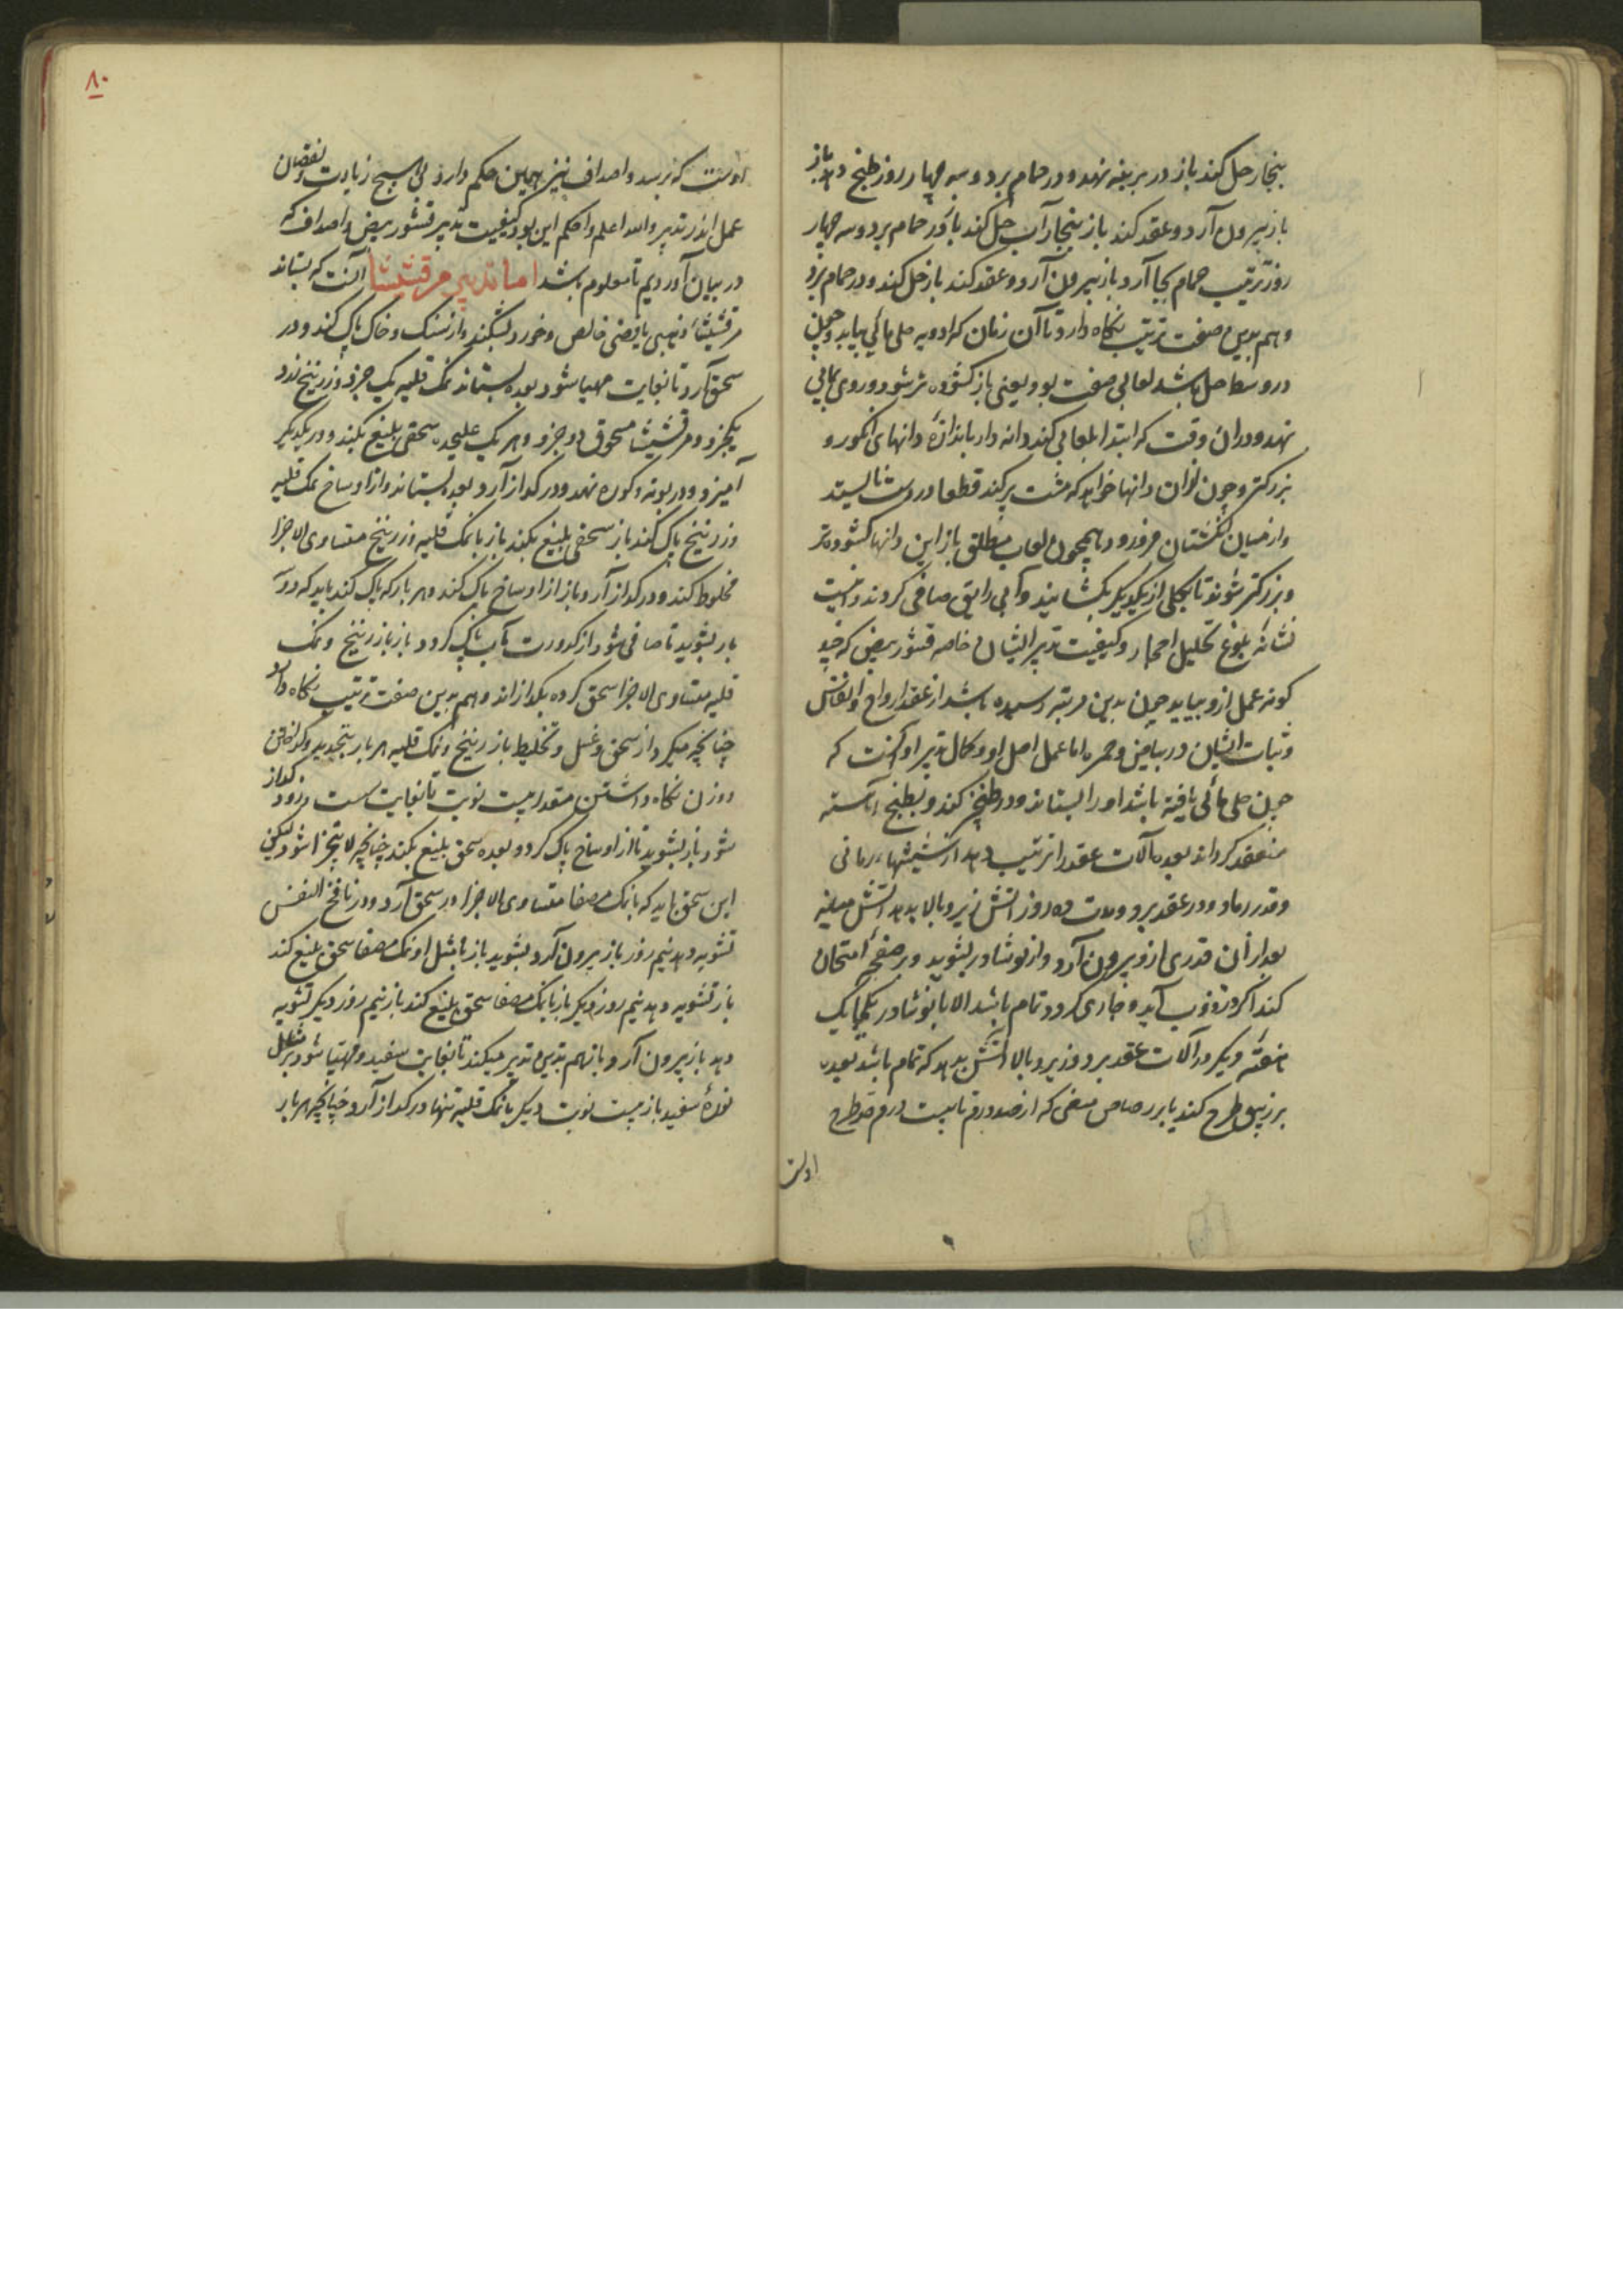 بنجار حل کند باز در برینه نهد و در حمام برد و سه چهار روز طبخ دهد باز
باز بیرون آرد و عقد کند باز بنجار آب حل کند باز در حمام برد و سه چهار
روز ترتیب حمام بجا آرد باز بیرون آرد و عقد کند باز حل کند و در حمام برد
و هم بدین صفت ترتیب نکاه دارد تا آن زمان که ادویه حلی مائی بیابد و چون
در وسط حل باشد لعابی صفت بود یعنی باز کشوده تر شود و روی بمائی
نهد و در آن وقت که ابتدا بلعابی کند دانه دار باندازهٔ دانهای انکور و
بزرکتر و چون از ان دانها خواهد که مشت پر کند قطعا در دست نایستد
و از میان انکشتان فرو رود همچون لعاب مطلق باز این دانها کشوده تر
و بزرکتر شوند تا بکلی از یکدیکر بکشایند و آبی رایق صافی کردند و اینست
نشانهٔ بلوغ تحلیل احجار و کیفیت تدبیر ایشان خاصه قشور بیض که چند
کونه عمل ازو بیاید چون بدین مرتبه رسیده باشد از عقد ارواح و انفاس
و ثبات ایشان در بیاض و حمره اما عمل اصل او و کمال تدبیر او آنست که
چون حلی مائی یافته باشد او را بستاند و در طبخ کند و بطبخ آهسته
منعقد کرداند بعده آلات عقد را ترتیب دهد از شیشهاء رمانی
و قدر رماد و در عقد برد و مدت ده روز آتش زیر و بالا بدهد آتش میانه
بعد از آن قدری ازو بیرون آرد و از نوشادر بشوید و بر صفحه امتحان
کند اگر در ذوب آید و جاری کردد تمام باشد الا با نوشادر یکجا یک
هفته دیکر در آلات عقد برد و زیر و بالا آتش بدهد که تمام باشد بعده
بر زیبق طرح کند یا بر رصاص منقی که از صد درم تا بیست درم قدر طرح
اوست
۸۰
اوست که برسد و اصداف نیز همین حکم دارد بی هیچ زیادت و نقصان
عمل اندر تدبیر والله اعلم و احکم این بود کیفیت تدبیر قشور بیض و اصداف که
در بیان آوردیم تا معلوم باشد اما تدبیر مرقشیشا آنست که بستاند
مرقشیشاء ذهبی یا فضی خالص و خورد بشکند و از سنک و خاک پاک کند و در
سحق آرد تا بغایت مهیا شود بعده بستاند نمک قلیه یک جزو و زرنیخ زرد
یکجزو و مرقشیشا مسحوق دو جزو و هر یک علیحده سحقی بلیغ بکند و در یکدیکر
آمیزد و در بوته و کوره نهد و در کداز آرد بعده بستاند و از اوساخ نمک قلیه
و زرنیخ پاک کند باز سحقی بلیغ بکند باز با نمک قلیه و زرنیخ متساوی الاجزا
مخلوط کند و در کداز آرد باز از اوساخ پاک کند و هر بار که پاک کند باید که دو
بار بشوید تا صافی شود از کدورت بآب پاک کردد باز با زرنیخ و نمک
قلیه متساوی الاجزا سحق کرده بکدازاند و هم بدین صفت ترتیب نکاه دارد
چنانچه میکرد از سحق و غسل و تخلیط با زرنیخ و نمک قلیه هر بار بتجدید و کداختن
و وزن نکاه داشتن مقدار بیست نوبت تا بغایت سست و زود کداز
شود باز بشوید تا از اوساخ پاک کردد و بعده سحق بلیغ بکند چنانچه لا یتجزا شود لیکن
این سحق باید که با نمک مصفا متساوی الاجزا در سحق آرد و در نافخ النفس
تشویه دهد نیم روز باز بیرون آرد و بشوید باز با مثل او نمک مصفا سحق بلیغ کند
باز تشویه دهد نیم روز دیکر باز با نمک مصفا سحق بلیغ کند باز نیم روز دیکر تشویه
دهد باز بیرون آرد باز هم بدین تدبیر میکند تا بغایت سفید و مهیا شود بر مثل
نورهٔ سفید باز بیست نوبت دیکر با نمک قلیه تنها در کداز آرد چنانچه هر بار